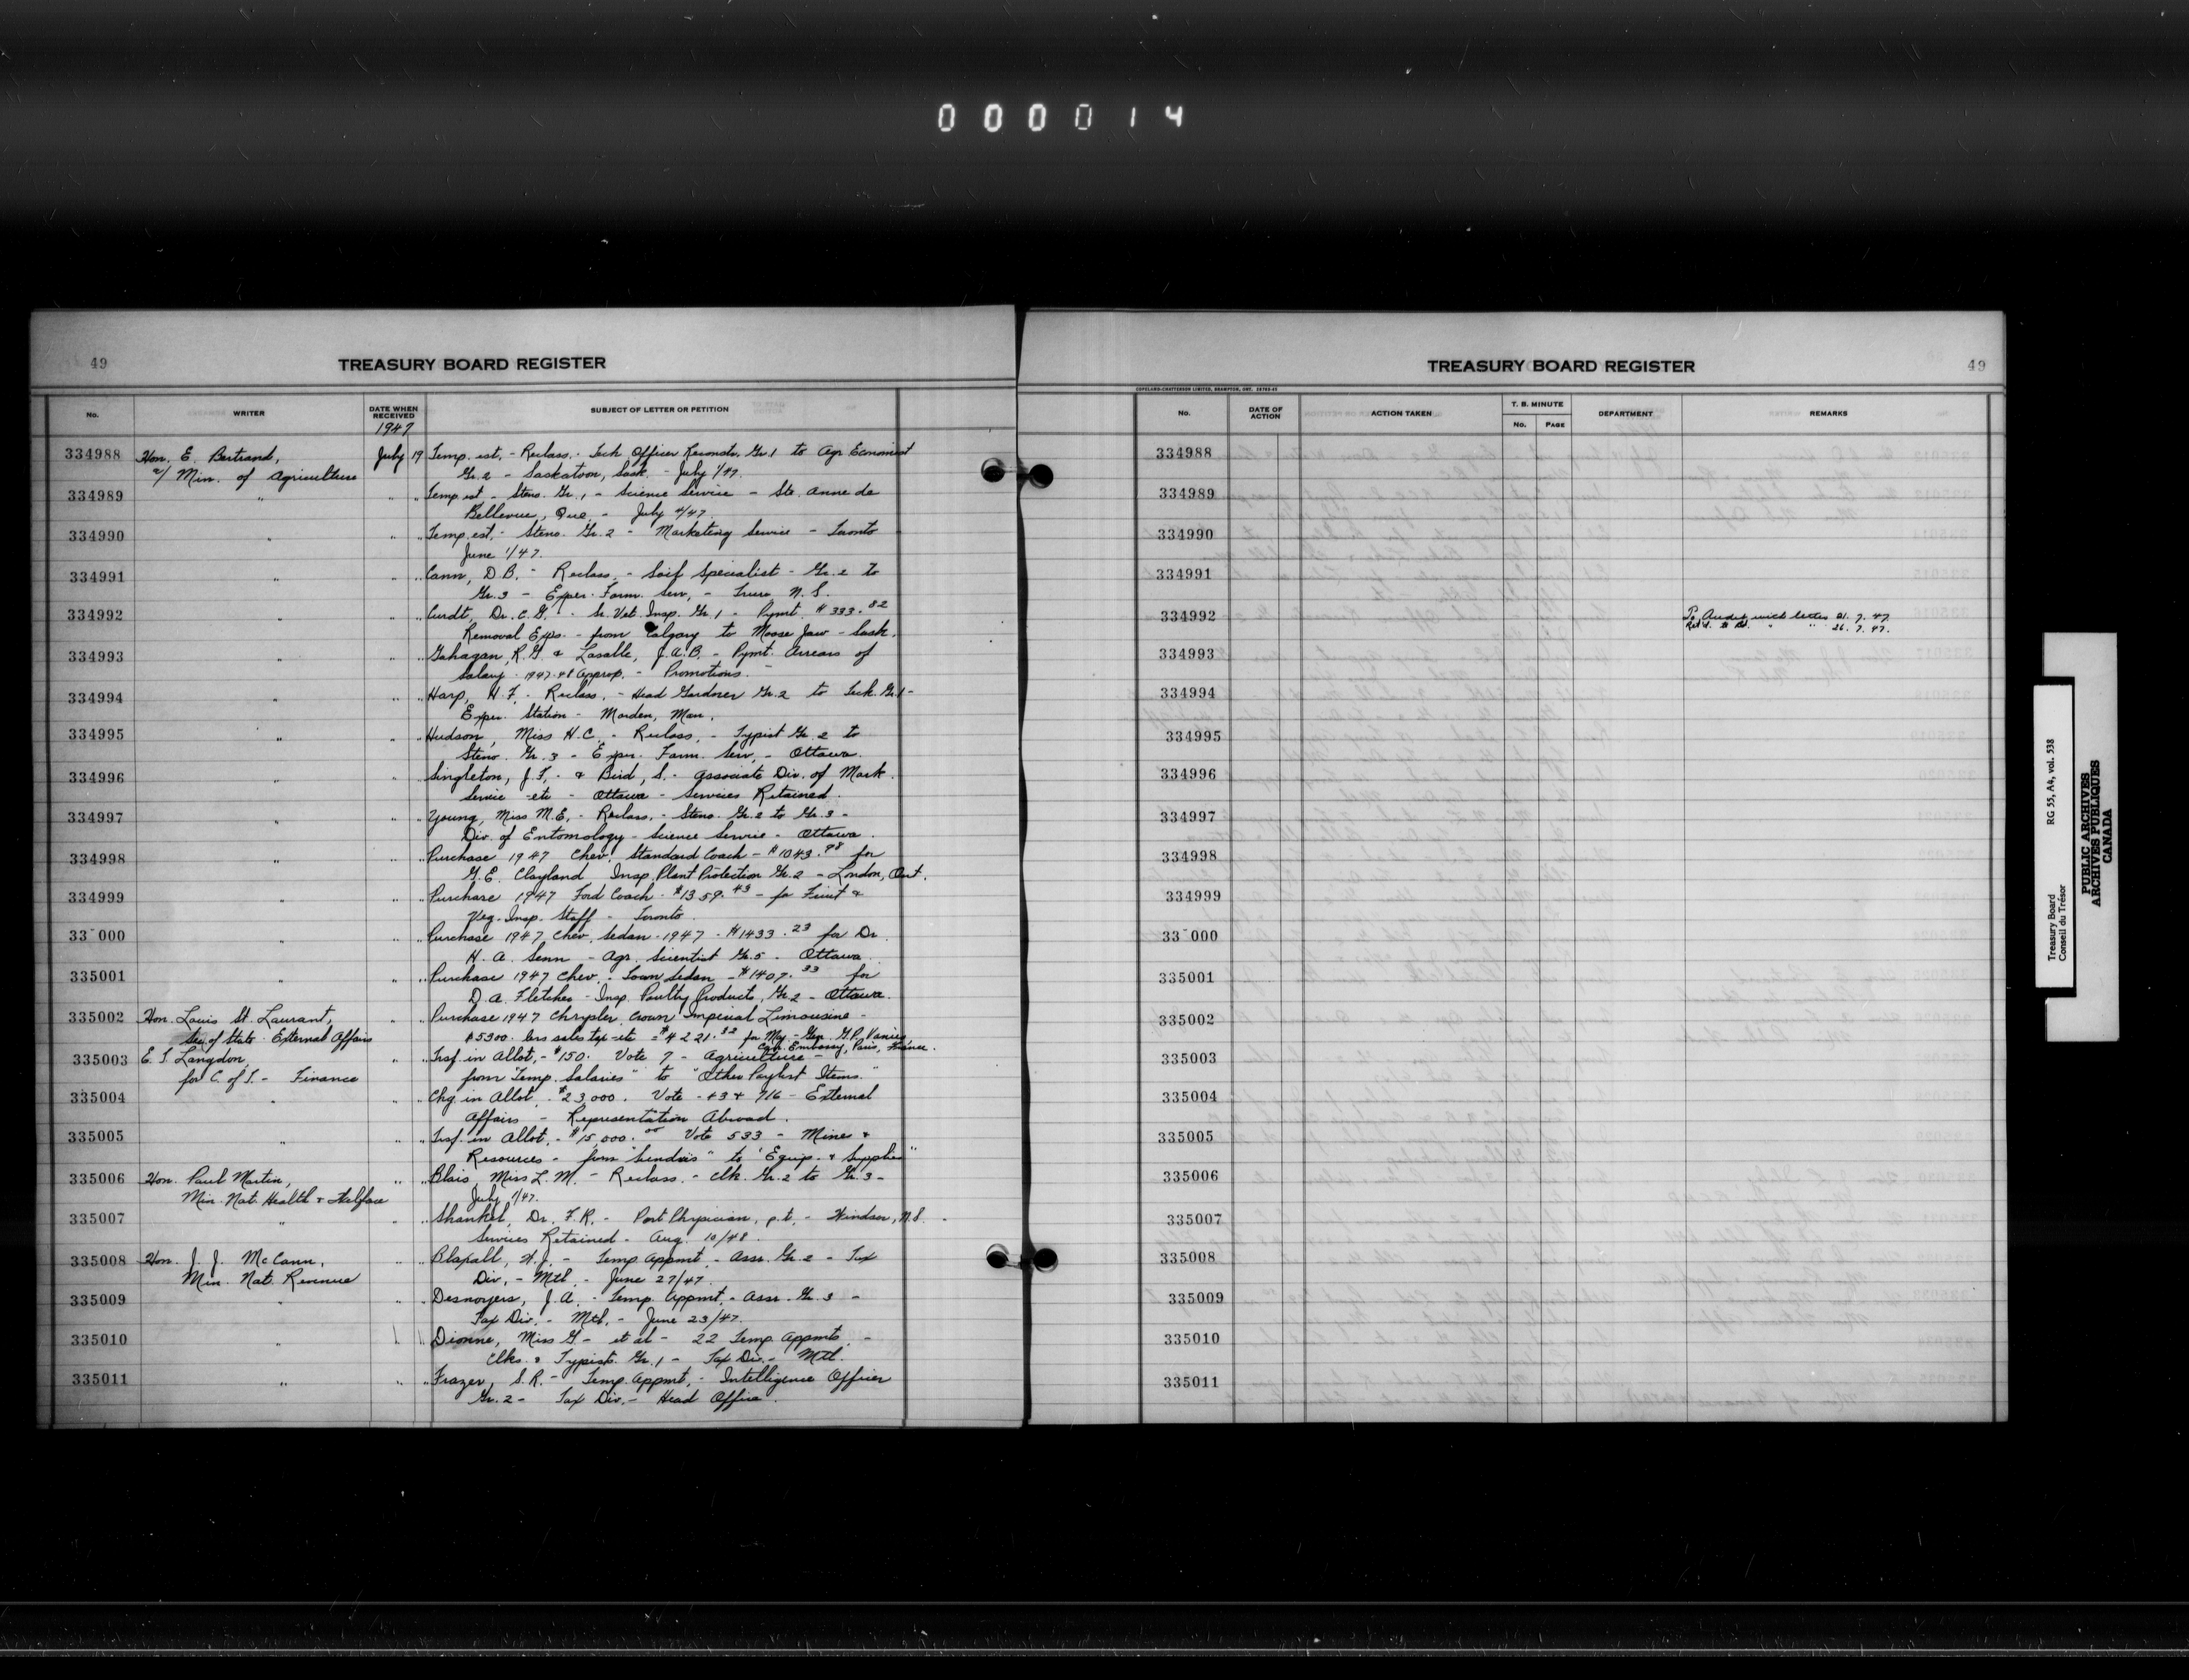 000014
49
TREASURY BOARD REGISTER
No.
WRITER
DATE WHEN RECEIVED
SUBJECT OF LETTER OR PETITION
1947
334988 Hon. E. Bertrand, July 19 Temp. est. - Reclass. - Tech Officer Gr. 1 to Agr Economist
a/ Min. of Agriculture Gr. 2 - Saskatoon, Sask. - July 1/47.
334989 " " " Temp est - Steno. Gr. 1 - Science Service - Ste. Anne de
Bellevue, Que. - July 4/47.
334990 " " " Temp. est. - Steno. Gr. 2 - Marketing Service - Toronto
June 1/47.
334991 " " " Cann, D.B. - Reclass. - Soil Specialist - Gr. 2 to
Gr. 3 - Exper. Farm. Serv. - Truro N.S.
334992 " " " Curdt, Dr. C.G. - Sr. Vet. Insp. Gr. 1 - Pymt. $333.82
Removal Exps. - from Calgary to Moose Jaw - Sask.
334993 " " " Gahagan, R.G. & Lasalle, J.A.B. - Pymt. Arrears of
Salary - 1947-48 Approp. - Promotions.
334994 " " " Harp, H.F. - Reclass. - Head Gardener Gr. 2 to Tech. Gr. 1 -
Exper. Station - Morden, Man.
334995 " " " Hudson, Miss H.C. - Reclass. - Typist Gr. 2 to
Steno. Gr. 3 - Exper. Farm. Serv. - Ottawa.
334996 " " " Singleton, J.F. - & Bird, S. - Associate Div. of Mark.
Service - etc - Ottawa - Services Retained.
334997 " " " Young, Miss M.E. - Reclass. - Steno. Gr. 2 to Gr. 3 -
Div. of Entomology - Science Service - Ottawa.
334998 " " " Purchase 1947 Chev. Standard Coach - $1043.98 for
G.E. Clayland Insp. Plant Protection Gr. 2 - London, Ont.
334999 " " " Purchase 1947 Ford Coach - $1359.43 - for Fruit &
Veg. Insp. Staff - Toronto.
33 000 " " " Purchase 1947 Chev. Sedan - 1947 - $1433.23 for Dr.
H.A. Senn - Agr. Scientist Gr. 5 - Ottawa.
335001 " " " Purchase 1947 Chev. Town Sedan - $1407.33 for
D.A. Fletcher - Insp. Poultry Products, Gr. 2 - Ottawa.
335002 Hon. Louis St. Laurant, " " Purchase 1947 Chrysler Crown Imperial Limousine -
Sec. of State External Affairs $5300. less sales tax - etc = $4221.32 for Maj - Gen. G.P. Vanier,
Can. Embassy, Paris, France.
335003 E. T. Langdon, " " Trsf. in Allot. - $150. Vote 7 - Agriculture -
for C. of T. - Finance from "Temp. Salaries" to "Other Paylist Items."
335004 " " " Chg. in Allot. - $23,000. Vote - 43 & 716 - External
Affairs - Representation Abroad.
335005 " " " Trsf. in Allot. - $15,000.00 Vote 533 - Mines &
Resources - from "Sundries" to "Equip. & Supplies"
335006 Hon. Paul Martin, " " Blais, Miss L.M. - Reclass. - Clk. Gr. 2 to Gr. 3 -
Min. Nat. Health & Welfare July 1/47.
335007 " " " Shankel, Dr. F.R. - Port Physician, p.t. - Windsor, N.S. -
Services Retained - Aug. 10/48.
335008 Hon. J. J. McCann, " " Blaxall, H.J. - Temp Appmt. - Assr. Gr. 2 - Tax
Min. Nat. Revenue Div. - Mtl. - June 27/47.
335009 " " " Desnoyers, J.A. - Temp. Appmt. - Assr. Gr. 3 -
Tax Div. - Mtl. - June 23/47.
335010 " Dionne, Miss G - et al - 22 Temp. Appmts. -
Clks. & Typists. Gr. 1 - Tax Div. - Mtl.
335011 " " " Frazer, S.R. - Temp. Appmt. - Intelligence Officer
Gr. 2 - Tax Div. - Head Office.
TREASURY BOARD REGISTER
49
COPELAND-CHATTERSON LIMITED, BRAMPTON, ONT.
No.
DATE OF ACTION
ACTION TAKEN
T. B. MINUTE
No.
PAGE
DEPARTMENT
REMARKS
334988
334989
334990
334991
334992 To Audit with letter 21.7.47.
" " 26.7.47.
334993
334994
334995
334996
334997
334998
334999
33 000
335001
335002
335003
335004
335005
335006
335007
335008
335009
335010
335011
Treasury Board RG 55, A4, vol. 538
Conseil du Trésor
PUBLIC ARCHIVES
ARCHIVES PUBLIQUES
CANADA